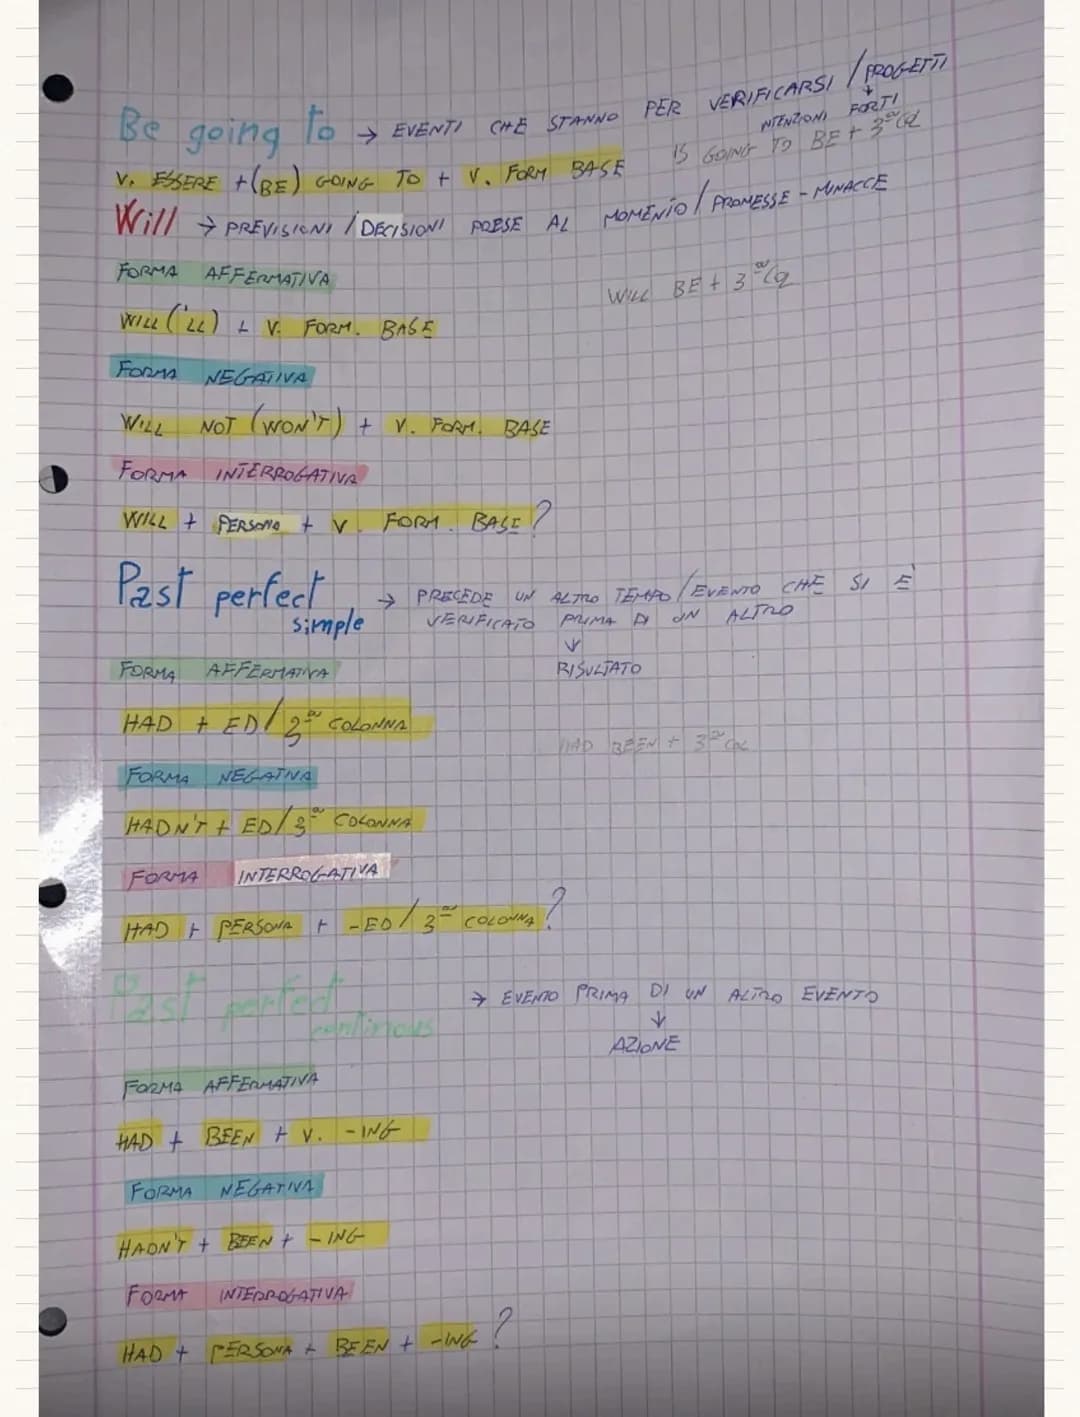 Be going to → EVENTI CHE STANNO PER VERIFICARSI / PROGETTI
↓
INTENZIONI FORTI
V. ESSERE + (BE) GOING TO + V. FORM BASE
IS GOING TO BE + 3ª Col
Will → PREVISIONI / DECISIONI PRESE AL MOMENTO / PROMESSE - MINACCE
FORMA AFFERMATIVA
WILL BE + 3ª Col
WILL ('LL) + V. FORM. BASE
FORMA NEGATIVA
WILL NOT (WON'T) + V. FORM. BASE
FORMA INTERROGATIVA
WILL + PERSONA + V. FORM. BASE?
Past perfect simple → PRECEDE UN ALTRO TEMPO / EVENTO CHE SI È
VERIFICATO PRIMA DI UN ALTRO
↓
RISULTATO
FORMA AFFERMATIVA
HAD + ED / 3ª COLONNA
HAD BEEN + 3ª Col
FORMA NEGATIVA
HADN'T + ED / 3ª COLONNA
FORMA INTERROGATIVA
HAD + PERSONA + -ED / 3ª COLONNA?
Past perfect continous → EVENTO PRIMA DI UN ALTRO EVENTO
↓
AZIONE
FORMA AFFERMATIVA
HAD + BEEN + V. -ING
FORMA NEGATIVA
HADN'T + BEEN + -ING
FORMA INTERROGATIVA
HAD + PERSONA + BEEN + -ING?